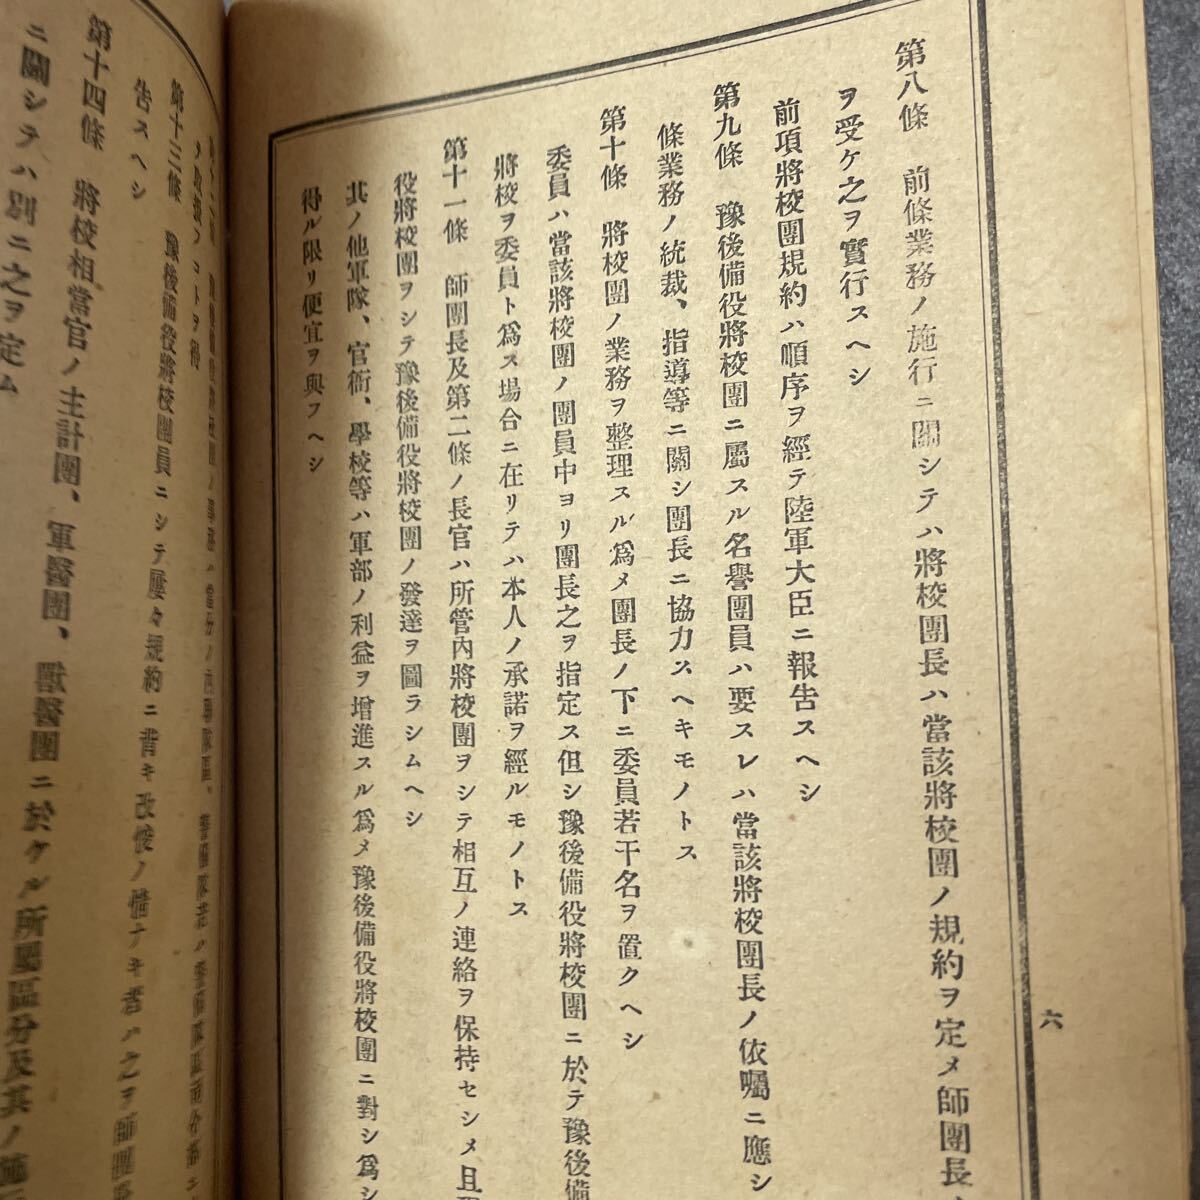 六
第八條 前條業務ノ施行ニ關シテハ將校團長ハ當該將校團ノ規約ヲ定メ師團長
ヲ受ケ之ヲ實行スヘシ
前項將校團規約ハ順序ヲ經テ陸軍大臣ニ報告スヘシ
第九條 豫後備役將校團ニ屬スル名譽團員ハ要スレハ當該將校團長ノ依囑ニ應シ
條業務ノ統裁、指導等ニ關シ團長ニ協力スヘキモノトス
第十條 將校團ノ業務ヲ整理スル爲メ團長ノ下ニ委員若干名ヲ置クヘシ
委員ハ當該將校團ノ團員中ヨリ團長之ヲ指定ス但シ豫後備役將校團ニ於テ豫後備
將校ヲ委員ト爲ス場合ニ在リテハ本人ノ承諾ヲ經ルモノトス
第十一條 師團長及第二條ノ長官ハ所管內將校團ヲシテ相互ノ連絡ヲ保持セシメ且
役將校團ヲシテ豫後備役將校團ノ發達ヲ圖ラシムヘシ
其ノ他軍隊、官衙、學校等ハ軍部ノ利益ヲ增進スル爲メ豫後備役將校團ニ對シ爲シ
得ル限リ便宜ヲ與フヘシ
コトヲ得
第十三條 豫後備役將校團員ニシテ屢々規約ニ背キ改悛ノ情ナキ者ハ之ヲ師團
告スヘシ
第十四條 將校相當官ノ主計團、軍醫團、獸醫團ニ於ケル所屬區分及其ノ施
ニ關シテハ別ニ之ヲ定ム